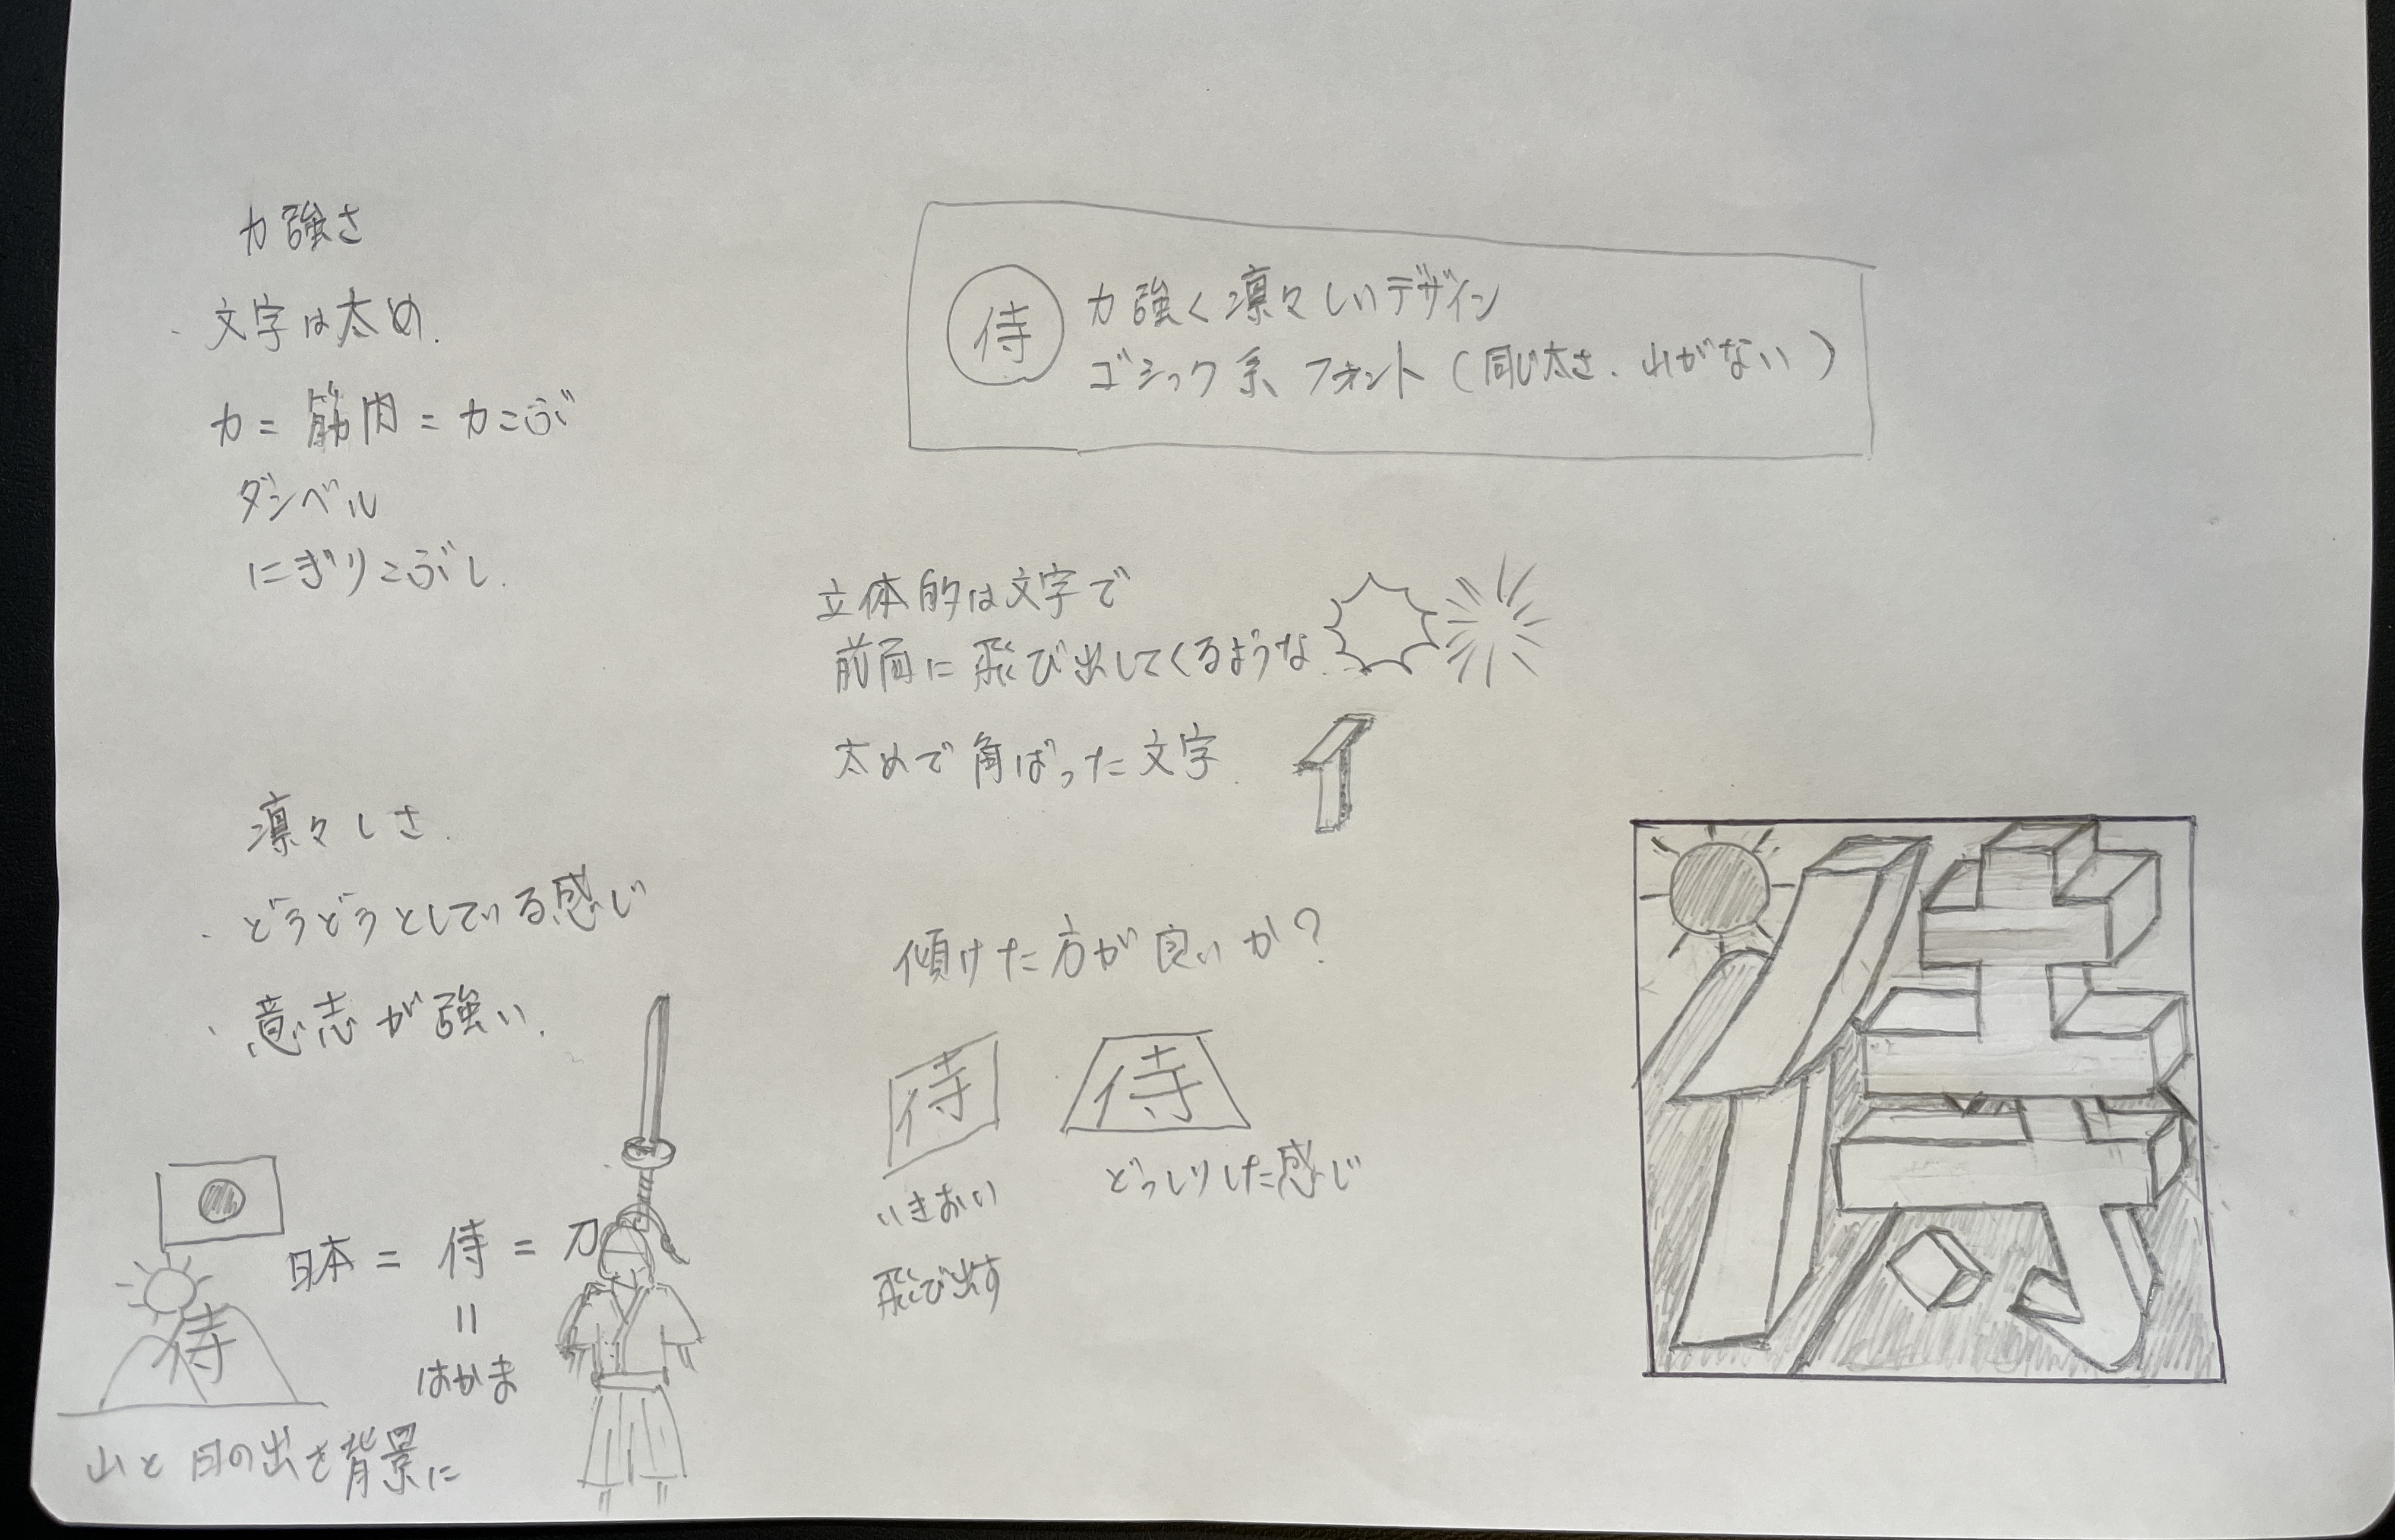 力強さ
・文字は太め.
力=筋肉=力こぶ
ダンベル
にぎりこぶし.
侍
力強く凛々しいデザイン
ゴシック系フォント(同じ太さ、山がない)
立体的は文字で
前面に飛び出してくるような
太めで角ばった文字
イ
凛々しさ.
・どうどうとしている感じ
・意志が強い.
傾けた方が良いか?
侍
侍
いきおい
どっしりした感じ
飛び出す
日本=侍=刀
=
はかま
侍
山と日の出を背景に
侍